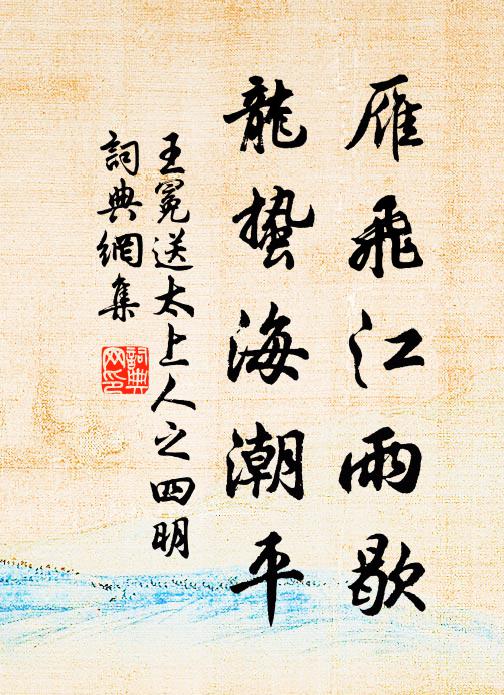 雁飛江雨歇
龍蟄海潮平
王冕送太上人之四明
詞典網集
詞典
网印